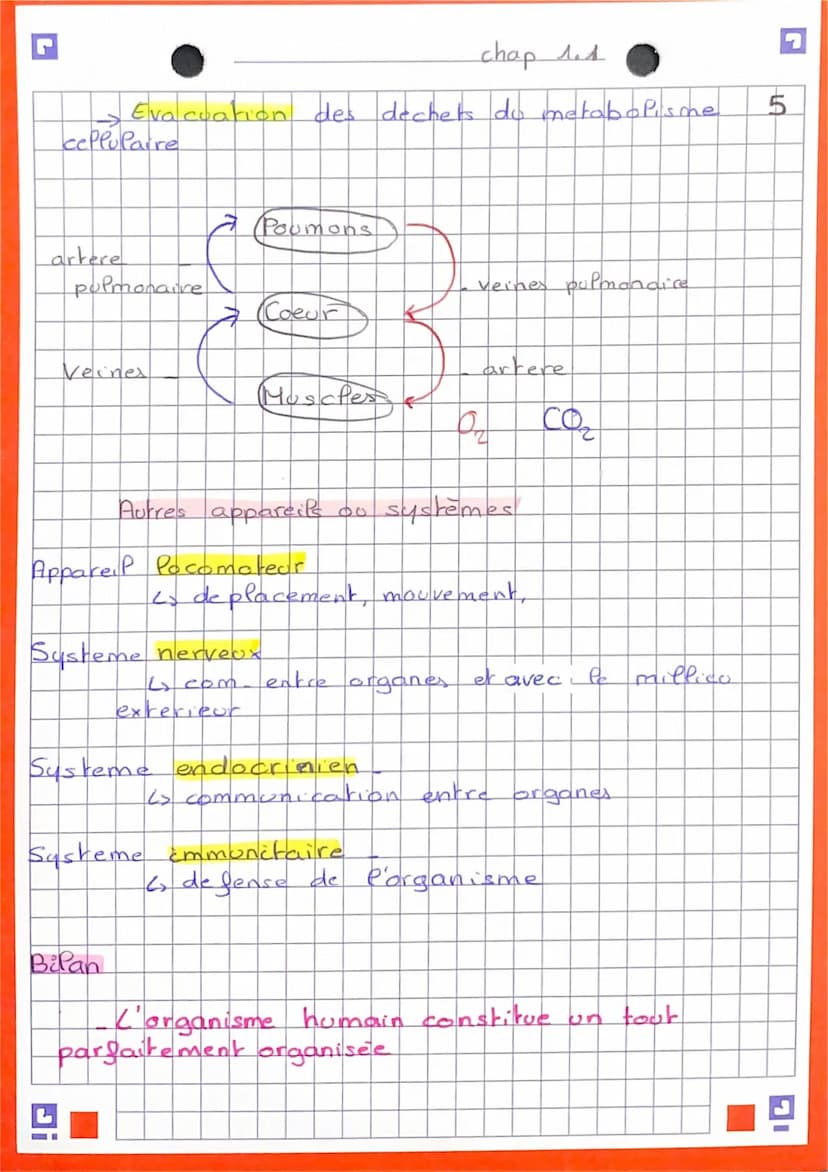 chap 1.1
5
→ Evacuation des dechets du metabolisme
cellulaire
Poumons
artere
pulmonaire
- veines pulmonaire
Coeur
Veines -
- artere
Muscles
O2 CO2
Autres appareils ou systèmes
Appareil locomoteur
↳ deplacement, mouvement,
Systeme nerveux
↳ com- entre organes et avec le millieu
exterieur
Systeme endocrinien -
↳ communication entre organes
Systeme immunitaire -
↳ defense de l'organisme
Bilan
- L'organisme humain constitue un tout
parfaitement organisée